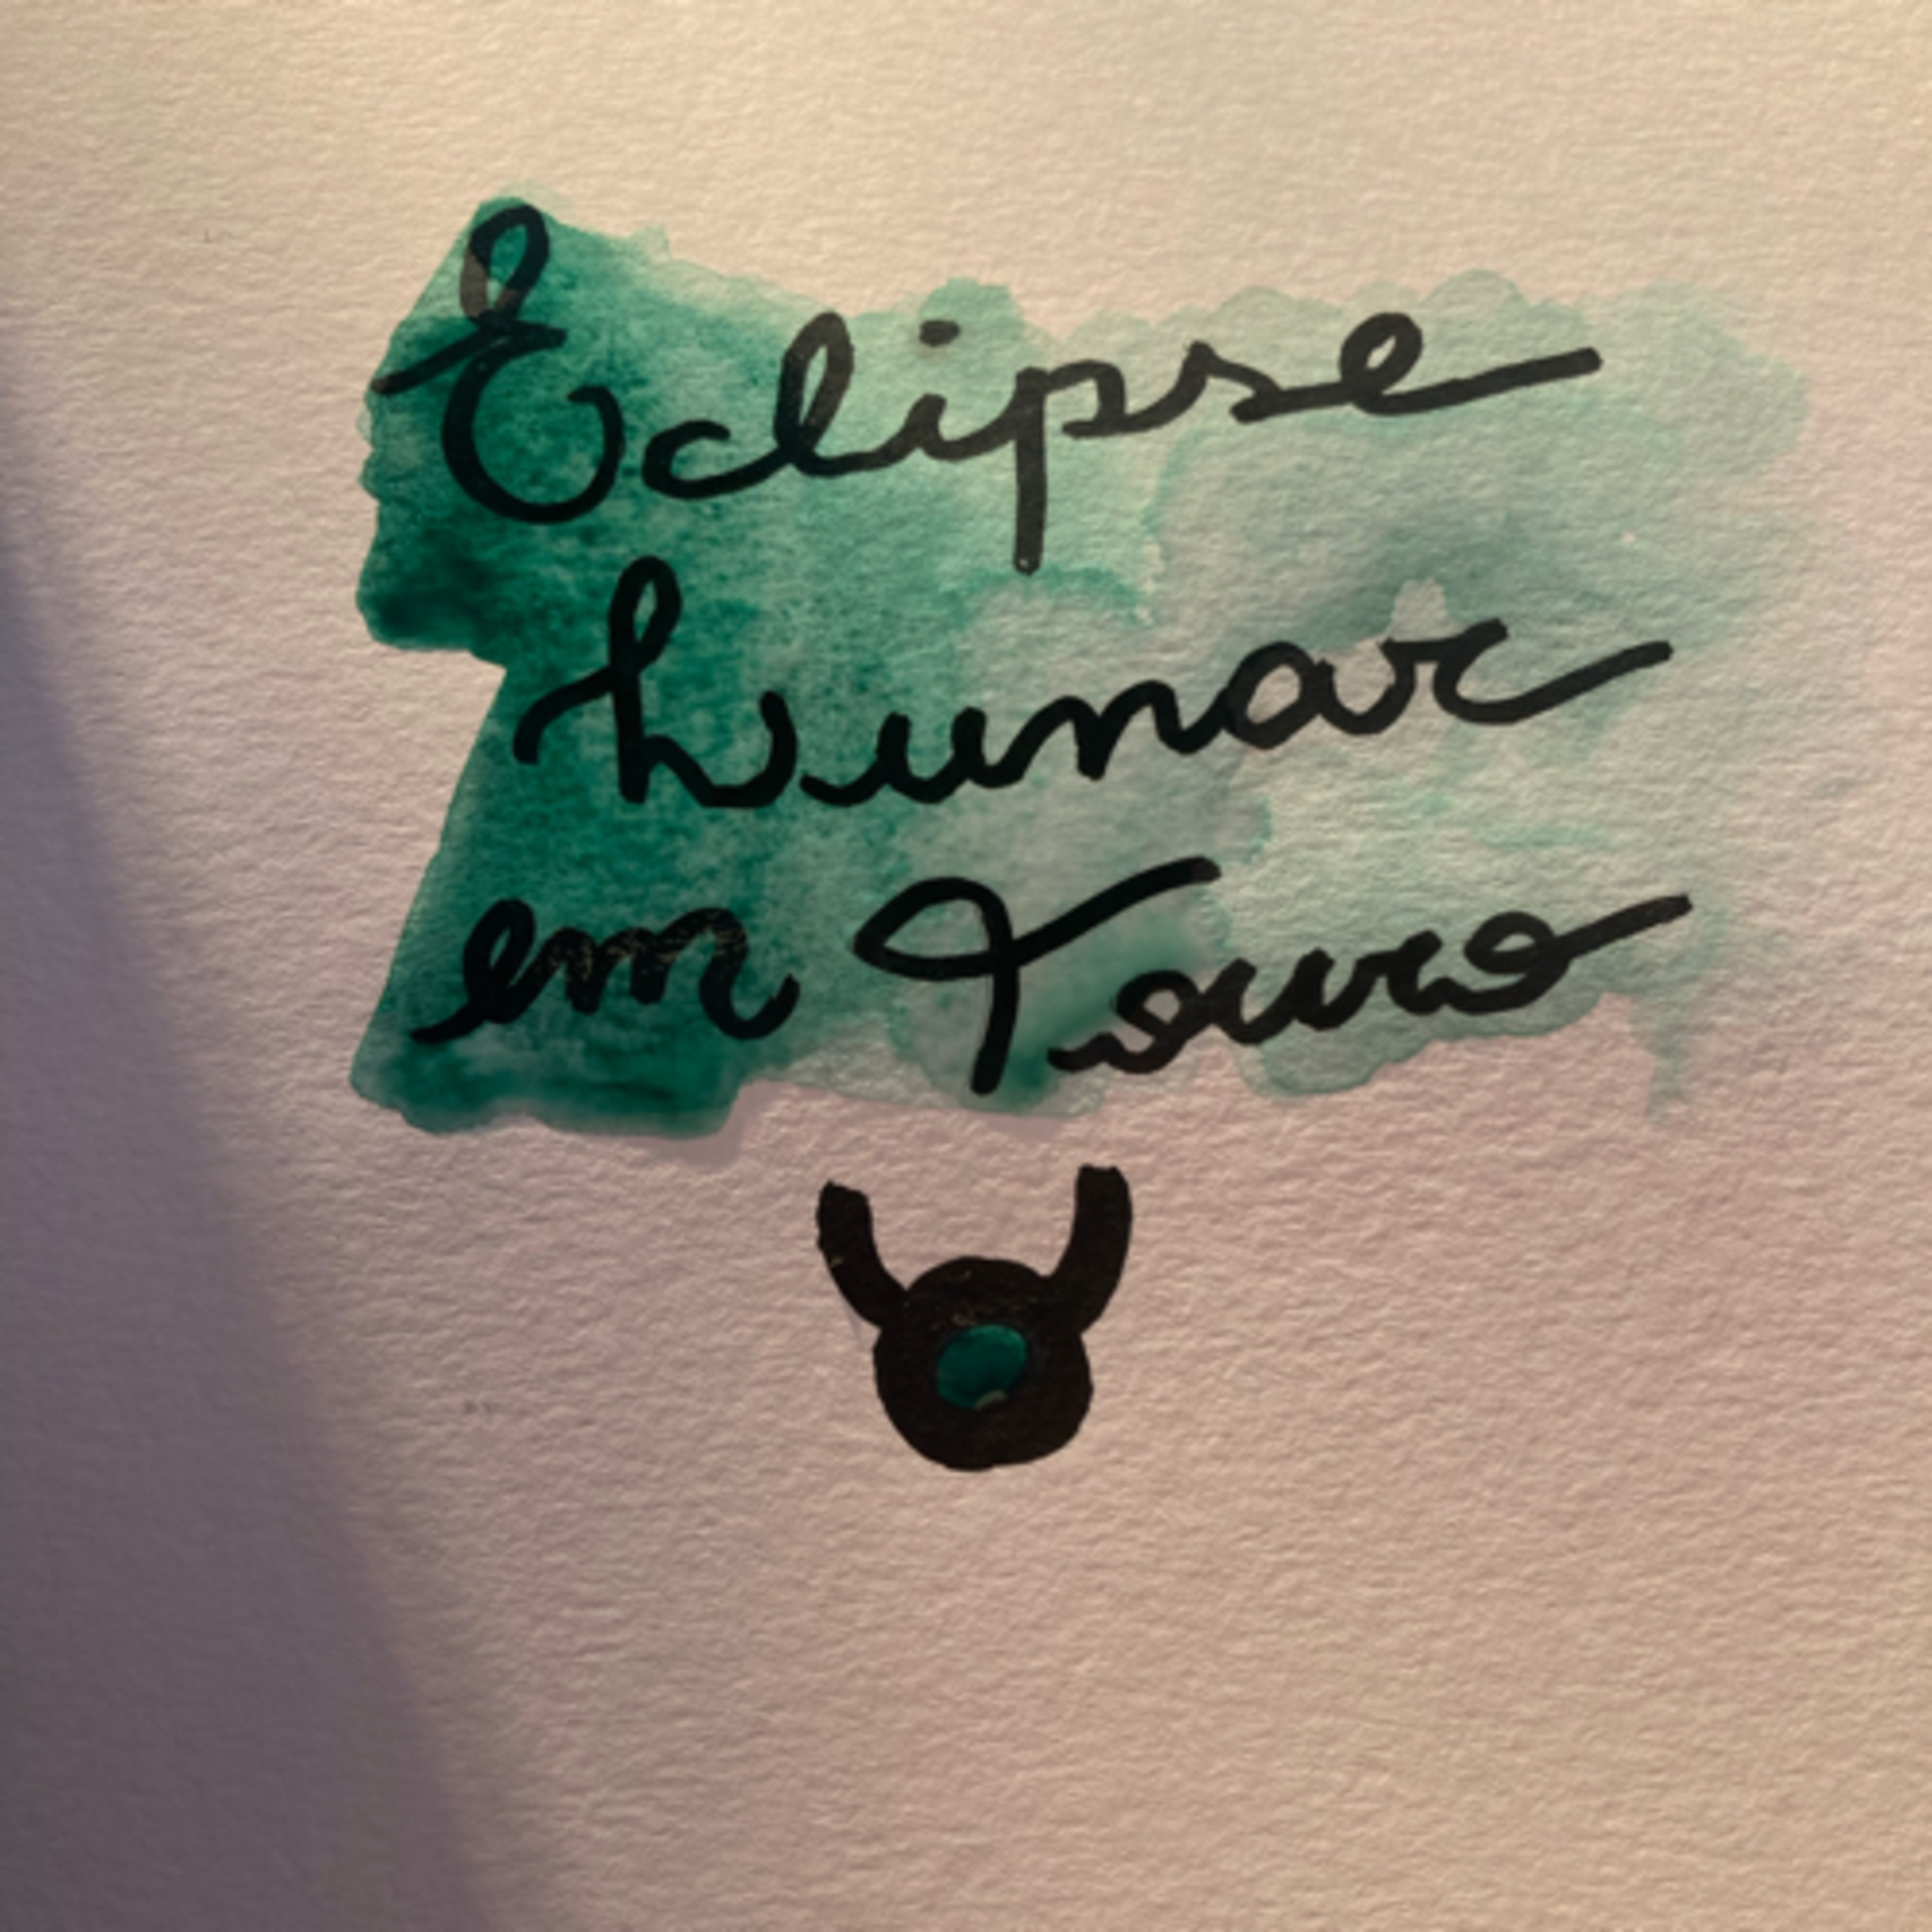 Eclipse
Lunar
em Touro